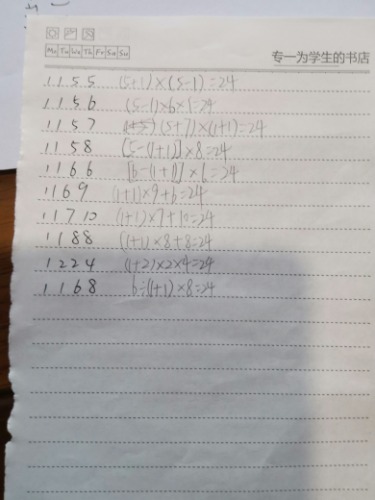 Mo Tu We Th Fr Sa Su
专一为学生的书店
1 1 5 5 (5+1)×(5-1)=24
1 1 5 6 (5-1)×6×1=24
1 1 5 7 (5+7)×(1+1)=24
1 1 5 8 [5-(1+1)]×8=24
1 1 6 6 [6-(1+1)]×6=24
1 1 6 9 (1+1)×9+6=24
1 1 7 10 (1+1)×7+10=24
1 1 8 8 (1+1)×8+8=24
1 2 2 4 (1+2)×2×4=24
1 1 6 8 6÷(1+1)×8=24